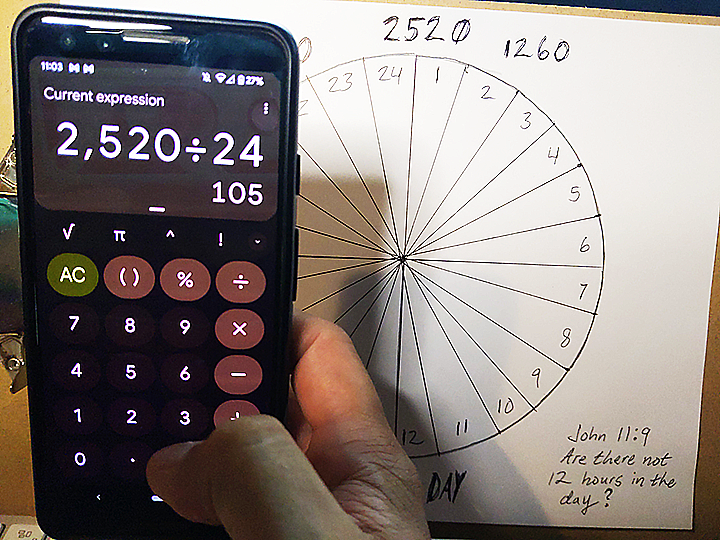 11:03
27%
Current expression
2,520÷24
105
√ π ^ !
AC ( ) % ÷
7 8 9 ×
4 5 6 −
1 2 3 +
0 .
2520
1260
23 24 1 2 3 4 5 6 7 8 9 10 11 12
DAY
John 11:9
Are there not
12 hours in the
day?
80